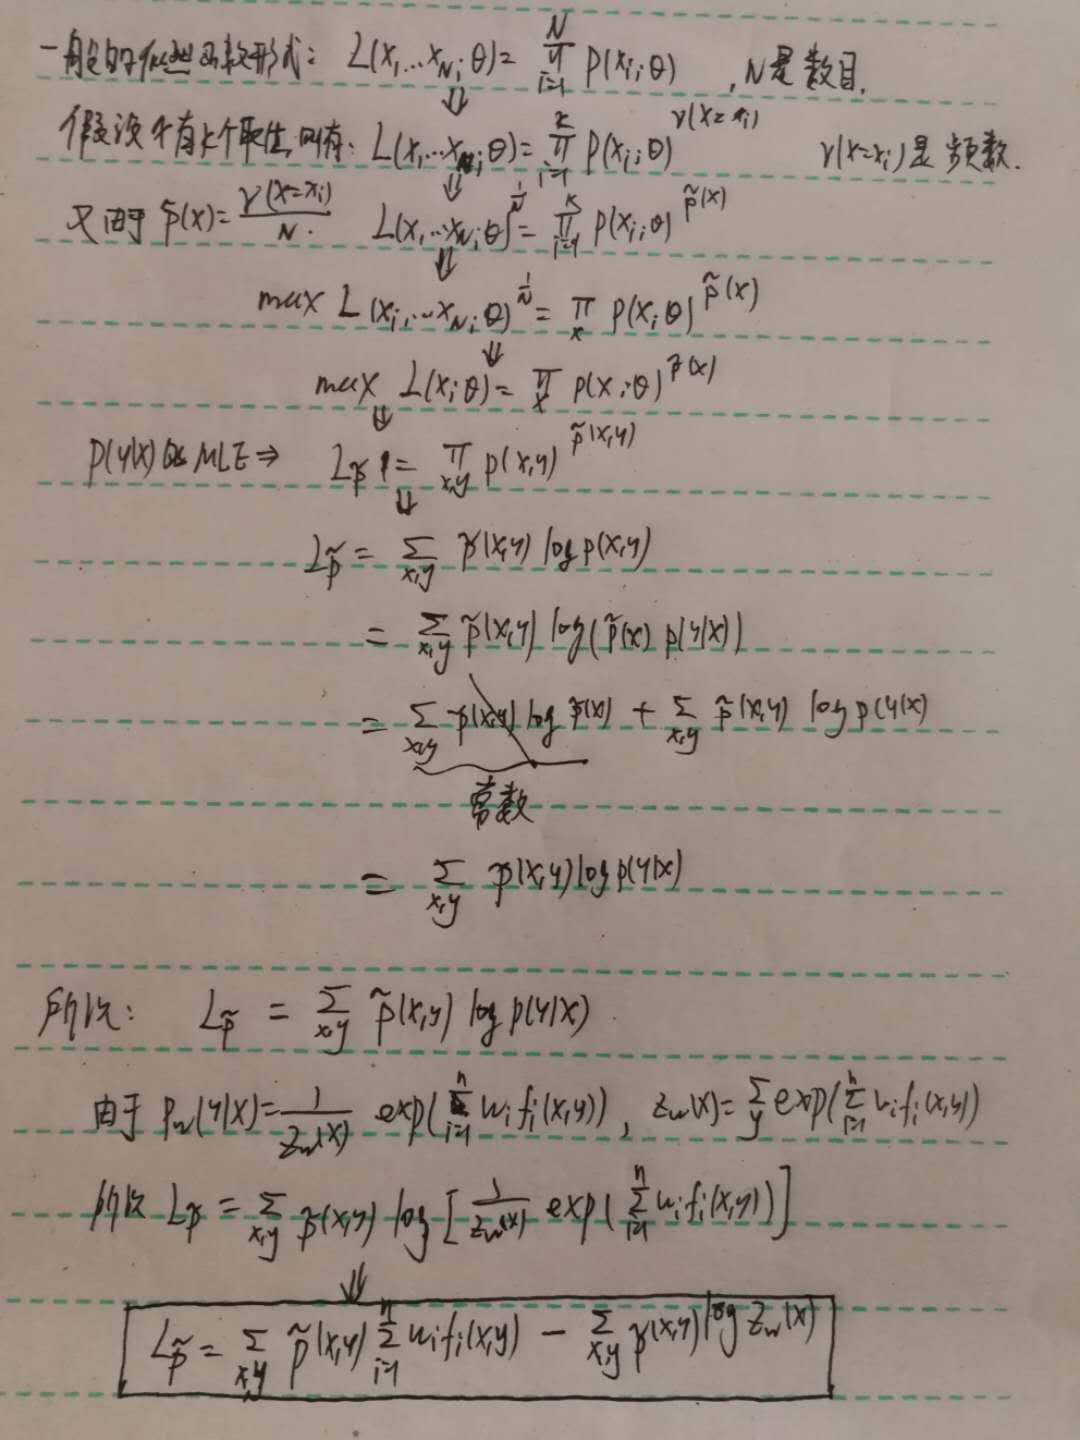 一般的似然函数形式: L(x₁...x_N;θ)= ∏_{i=1}^{N} p(x_i;θ) , N是数目.
⇓
假设X有k个取值,则有: L(x₁...x_N;θ)= ∏_{i=1}^{k} p(x_i;θ)^{v(X=x_i)} v(X=x_i)是频数.
⇓
又由于 p̃(x)= v(X=x_i)/N. L(x₁...x_N;θ)^{1/N} = ∏_{i=1}^{k} p(x_i;θ)^{p̃(x)}
⇓
max L(x_i,...x_N;θ)^{1/N} = ∏_x p(x;θ)^{p̃(x)}
⇓
max L(x;θ)= ∏_x p(x;θ)^{p̃(x)}
⇓
p(y|x)的MLE⇒ L_p̃ = ∏_{x,y} p(x,y)^{p̃(x,y)}
⇓
L_p̃ = ∑_{x,y} p̃(x,y) log p(x,y)
= ∑_{x,y} p̃(x,y) log(p̃(x) p(y|x))
= ∑_{x,y} p̃(x,y) log p̃(x) + ∑_{x,y} p̃(x,y) log p(y|x)
常数
= ∑_{x,y} p̃(x,y) log p(y|x)
所以: L_p̃ = ∑_{x,y} p̃(x,y) log p(y|x)
由于 p_w(y|x)= 1/Z_w(x) exp(∑_{i=1}^{n} w_i f_i(x,y)), Z_w(x)= ∑_y exp(∑_{i=1}^{n} w_i f_i(x,y))
所以 L_p̃ = ∑_{x,y} p̃(x,y) log[ 1/Z_w(x) exp(∑_{i=1}^{n} w_i f_i(x,y))]
⇓
L_p̃ = ∑_{x,y} p̃(x,y) ∑_{i=1}^{n} w_i f_i(x,y) − ∑_{x,y} p̃(x,y) log Z_w(x)